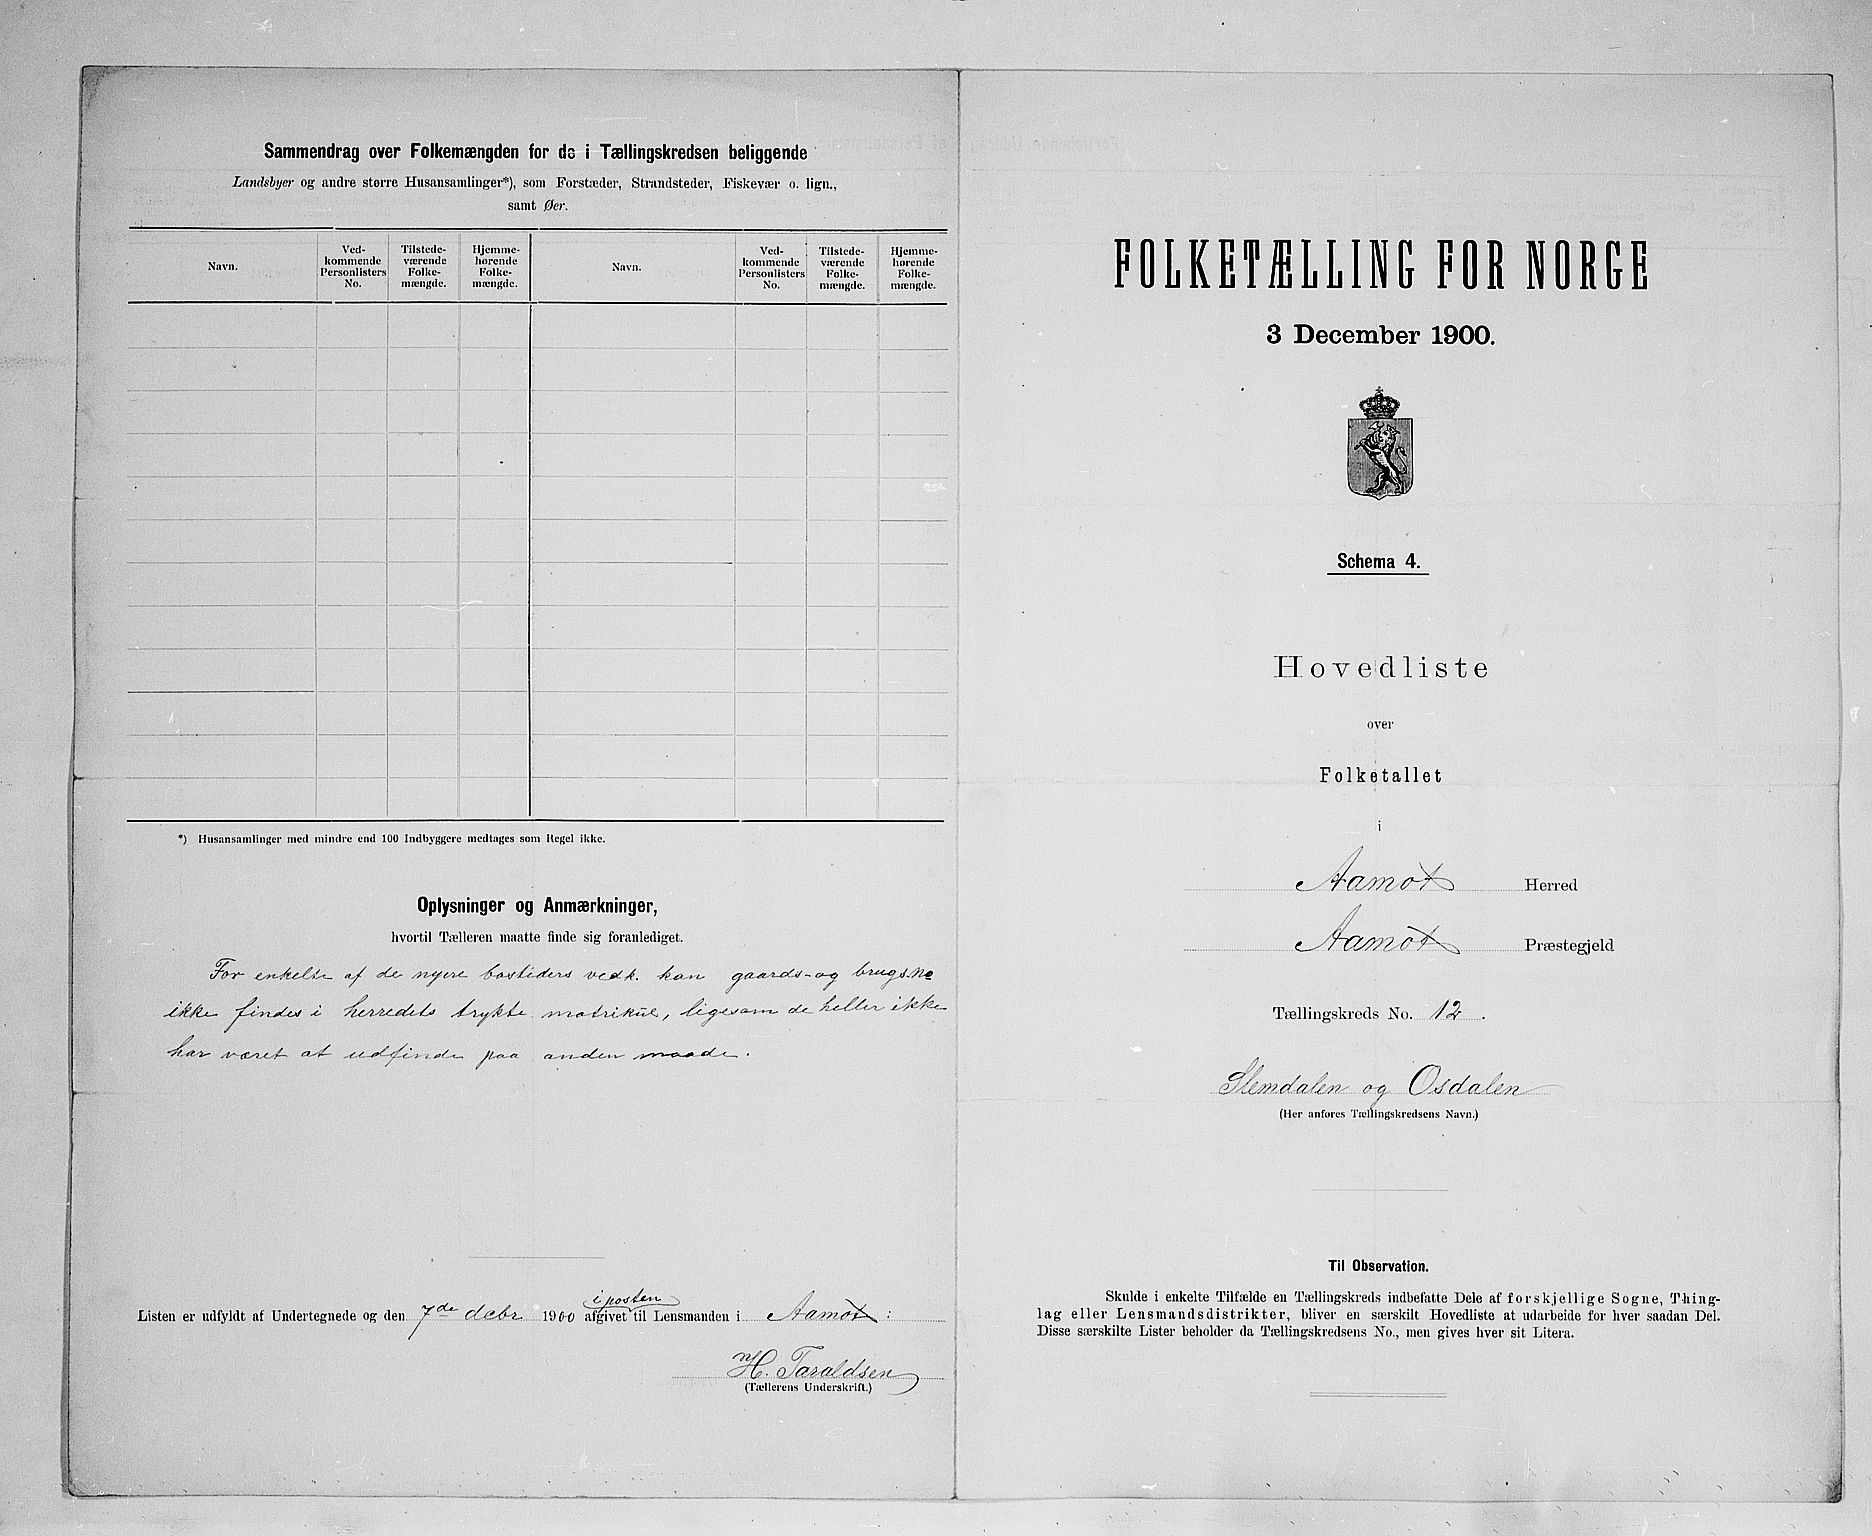 Sammendrag over Folkemængden for de i Tællingskredsen beliggende
Landsbyer og andre større Husansamlinger*), som Forstæder, Strandsteder, Fiskevær o. lign.,
samt Øer.
Navn.
Ved-
kommende
Personlisters
No.
Tilstede-
værende
Folke-
mængde.
Hjemme-
hørende
Folke-
mængde.
Navn.
Ved-
kommende
Personlisters
No.
Tilstede-
værende
Folke-
mængde.
Hjemme-
hørende
Folke-
mængde.
*) Husansamlinger med mindre end 100 Indbyggere medtages som Regel ikke.
Oplysninger og Anmærkninger,
hvortil Tælleren maatte finde sig foranlediget.
For enkelte af de nyere bosteders vedk. kan gaards- og brugs No
ikke findes i herredets trykte matrikul, ligesom de heller ikke
har været at udfinde paa anden maade.
i posten
Listen er udfyldt af Undertegnede og den 7de debr 1900 afgivet til Lensmanden i Aamot :
H. Taraldsen
(Tællerens Underskrift.)
FOLKETÆLLING FOR NORGE
3 December 1900.
Schema 4.
Hovedliste
over
Folketallet
i
Aamot Herred
Aamot Præstegjeld
Tællingskreds No. 12.
Slemdalen og Osdalen
(Her anføres Tællingskredsens Navn.)
Til Observation.
Skulde i enkelte Tilfælde en Tællingskreds indbefatte Dele af forskjellige Sogne, Thing-
lag eller Lensmandsdistrikter, bliver en særskilt Hovedliste at udarbeide for hver saadan Del.
Disse særskilte Lister beholder da Tællingskredsens No., men gives hver sit Litera.